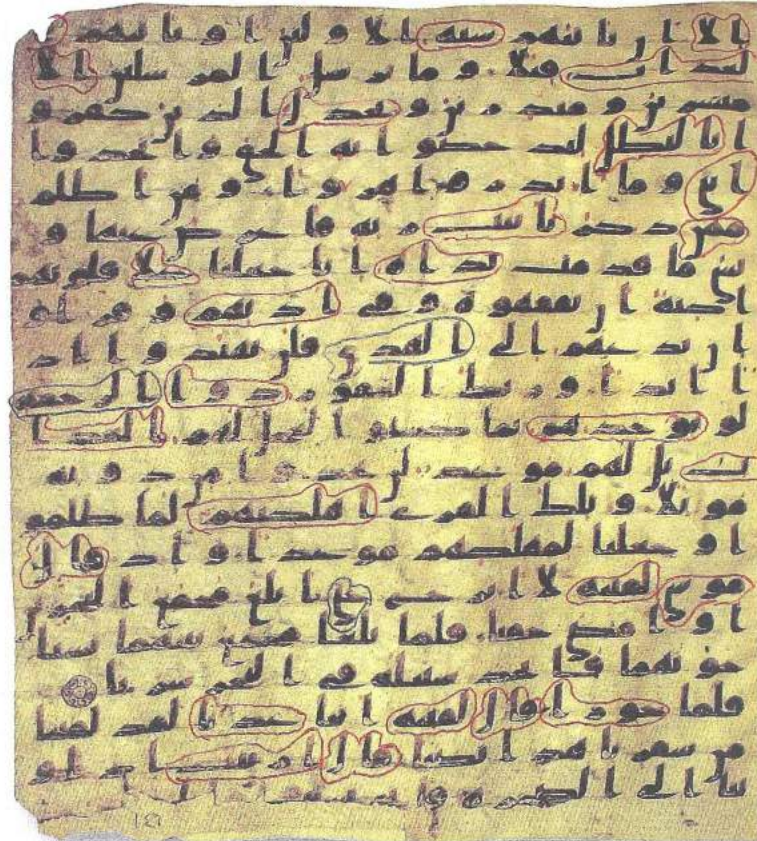 الا ان تاتيهم سنه الاولين او ياتيهم ا
لعذاب قبلا وما نرسل المرسلين الا
مبشرين ومنذرين ويجدل الذين كفرو
ا بالبطل ليدحضوا به الحق واتخذوا
ايتي وما انذروا هزوا ومن اظلم
ممن ذكر بايت ربه فاعرض عنها و
نسي ما قدمت يداه انا جعلنا علا قلوبهم
اكنة ان يفقهوه وفي اذنهم وقرا وان
تدعهم الى الهدى فلن يهتدوا اذ
ا ابدا وربك الغفور ذوا الرحمه
لو يوخذهم بما كسبوا لعجل لهم العذا
ب بل لهم موعد لن يجدوا من دونه
موئلا وتلك القرى اهلكنهم لما ظلمو
ا وجعلنا لمهلكهم موعدا واذ قال
موسى لفتيه لا ابرح حتى ابلغ مجمع البحرين
او امضي حقبا فلما بلغا مجمع بينهما نسيا
حوتهما فاتخذ سبيله في البحر سربا
فلما جوزا قال لفتيه اتنا غدانا لقد لقينا
من سفرنا هذا نصبا قال اريت اذ او
ينا الى الصخرة فاني نسيت